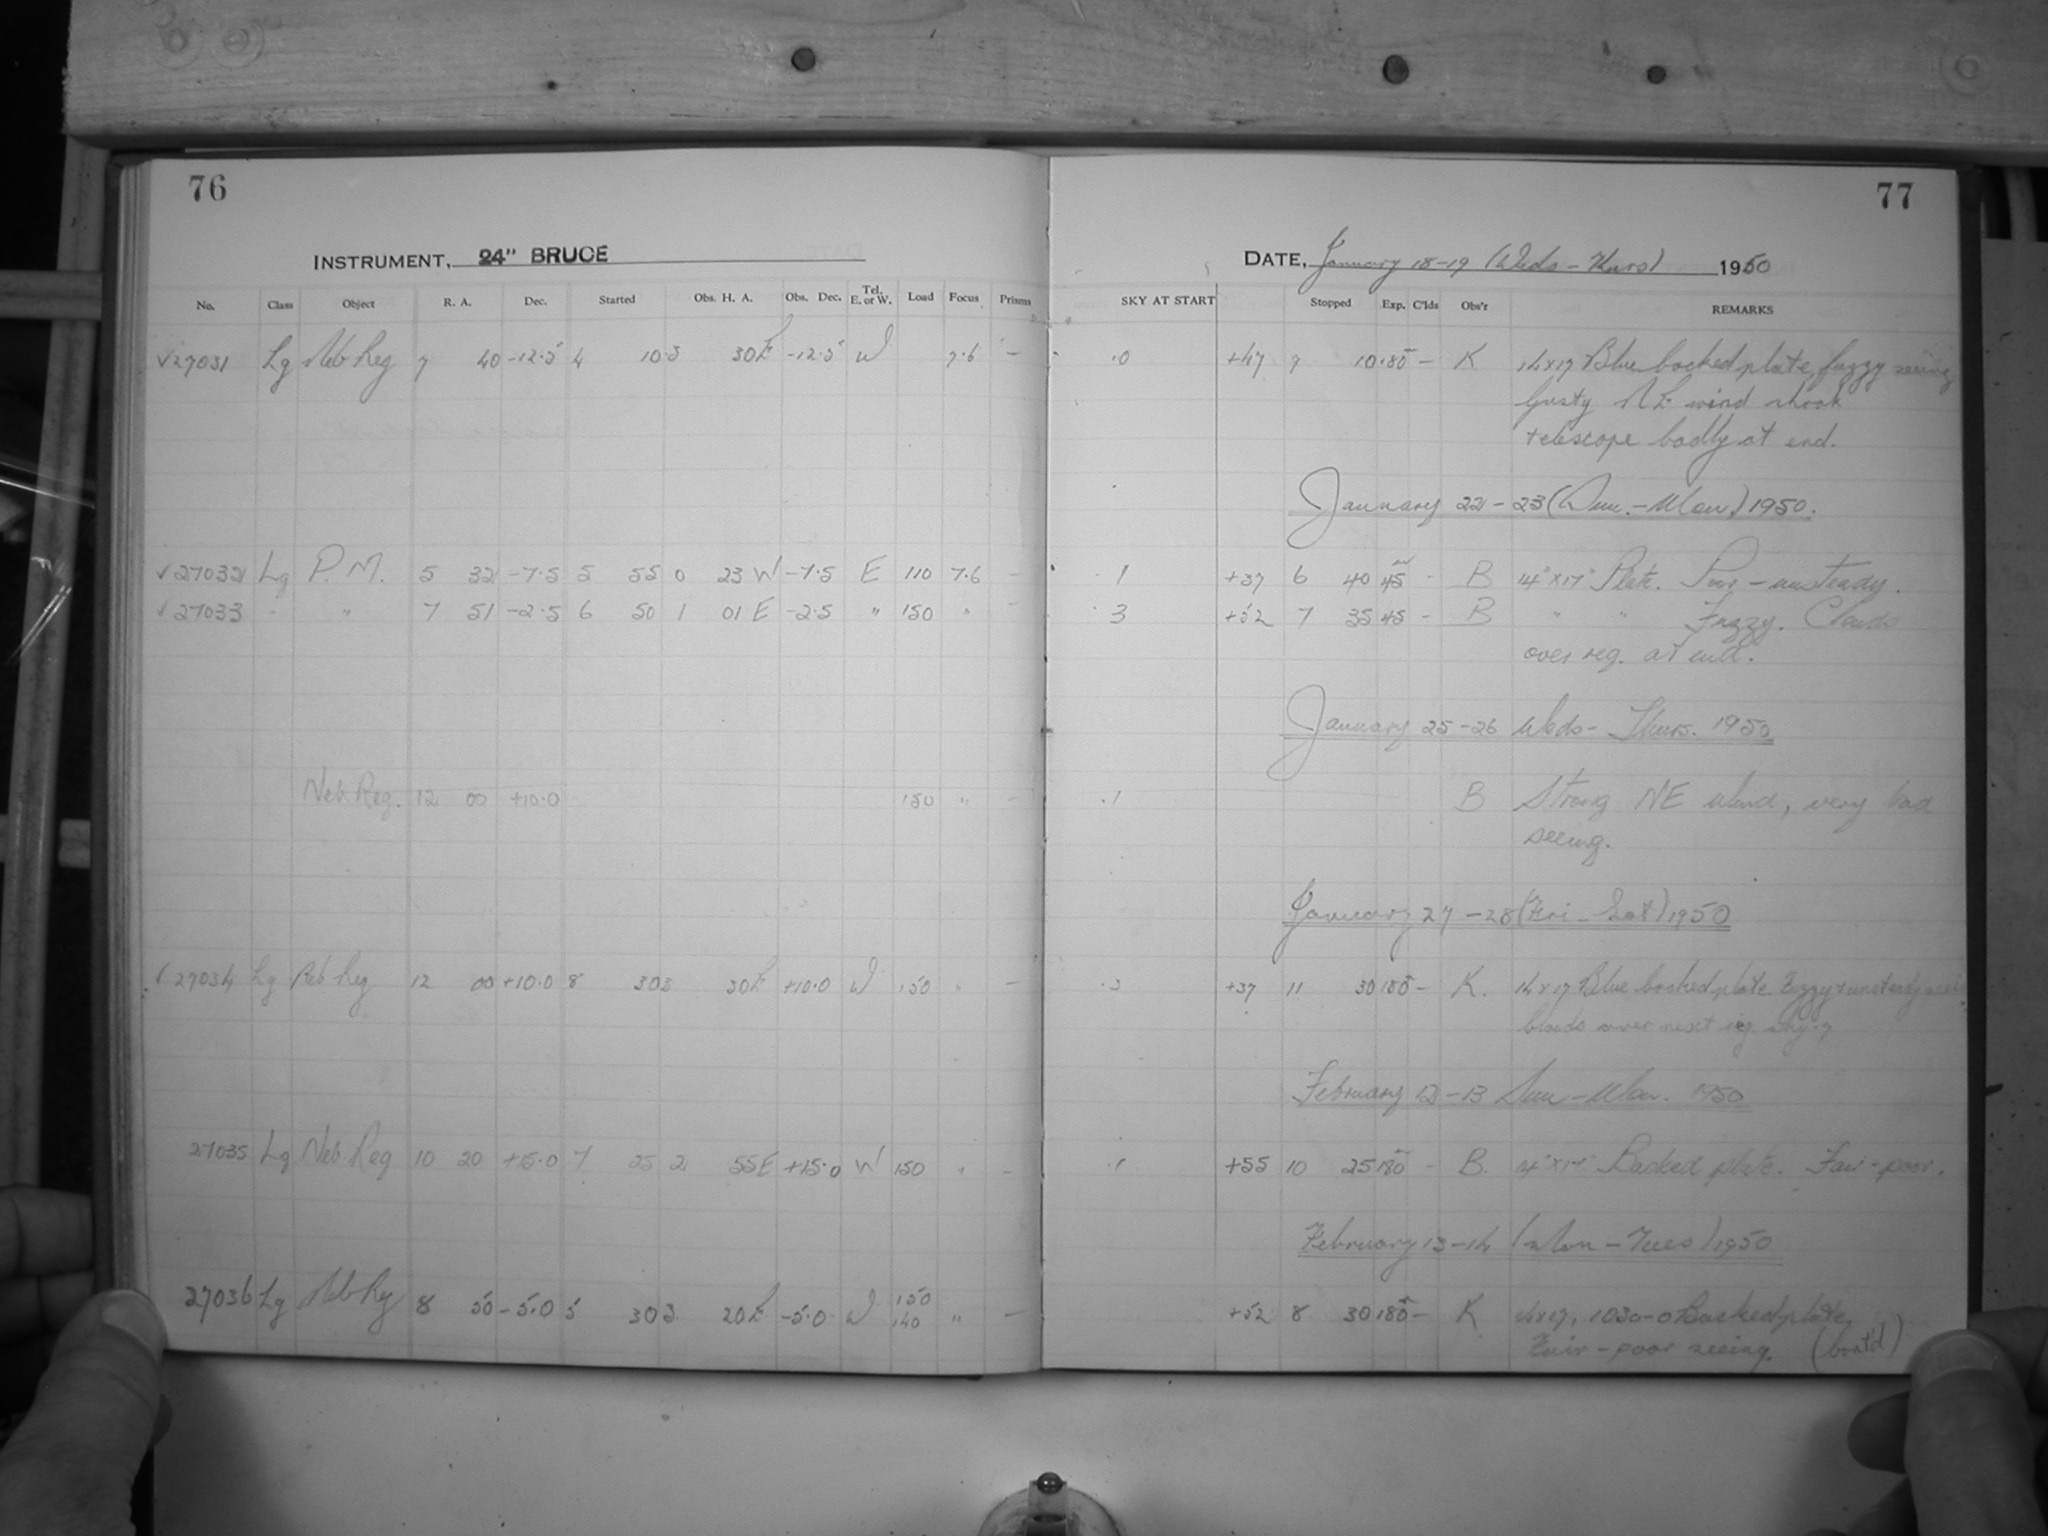 76
77
INSTRUMENT, 24" BRUCE
DATE, January 18-19 (Weds - Thurs) 1950
No. Class Object R. A. Dec. Started Obs. H. A. Obs. Dec. Tel. E. or W. Load Focus Prisms SKY AT START Stopped Exp. C'lds Obs'r REMARKS
√27031 Lg Neb Reg 7 40 -12.5 4 10 3 30E -12.5 W 7.6 - .0 +47 7 10 180 - K 14x17 Blue backed plate, fuzzy seeing
Gusty NE wind shook
telescope badly at end.
January 22-23 (Sun.-Mon.) 1950.
√27032 Lg P.M. 5 32 -7.5 5 55 0 23 W -7.5 E 110 7.6 - .1 +37 6 40 45 - B 14"x17" Plate. Poor - unsteady.
√27033 " " 7 51 -2.5 6 50 1 01 E -2.5 " 150 " - .3 +52 7 35 45 - B " " Fuzzy. Clouds
over reg. at end.
January 25-26 Weds- Thurs. 1950
Neb. Reg. 12 00 +10.0 150 " - .1 B Strong NE wind, very bad
seeing.
January 27-28 (Fri - Sat) 1950
√27034 Lg Neb Reg 12 00 +10.0 8 30 3 30E +10.0 W 150 " - +37 11 30 180 - K. 14x17 Blue backed plate. Fuzzy + unsteady
Clouds over next reg.
February 12-13 Sun-Mon. 1950
27035 Lg Neb. Reg 10 20 +15.0 7 25 2 55E +15.0 W 150 " - .1 +55 10 25 180 - B. 14"x17" Backed plate. Fair-poor.
February 13-14 (Mon - Tues) 1950
27036 Lg Neb Reg 8 50 -5.0 5 30 3 20E -5.0 W 150 140 " - +52 8 30 180 - K 14x17, 103a-O Backed plate,
Fair - poor seeing. (Cont'd)